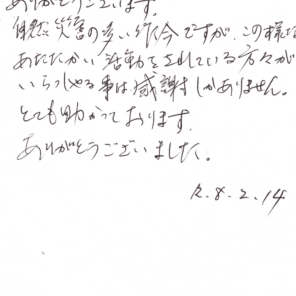 ありがとうございます。
自然災害の多い昨今ですが、この様な
あたたかい活動をされている方々が
いらっしゃる事は感謝しかありません。
とても助かっております。
ありがとうございました。
R.8.2.14